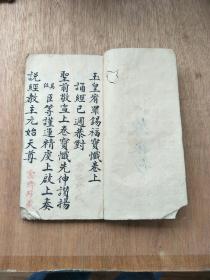 玉皇宥罪錫福寶懺卷上
誦經已週恭對
聖前敬宣上卷寶懺先伸讚揚
臣等謹運精虔上啟上奏
説經教主元始天尊